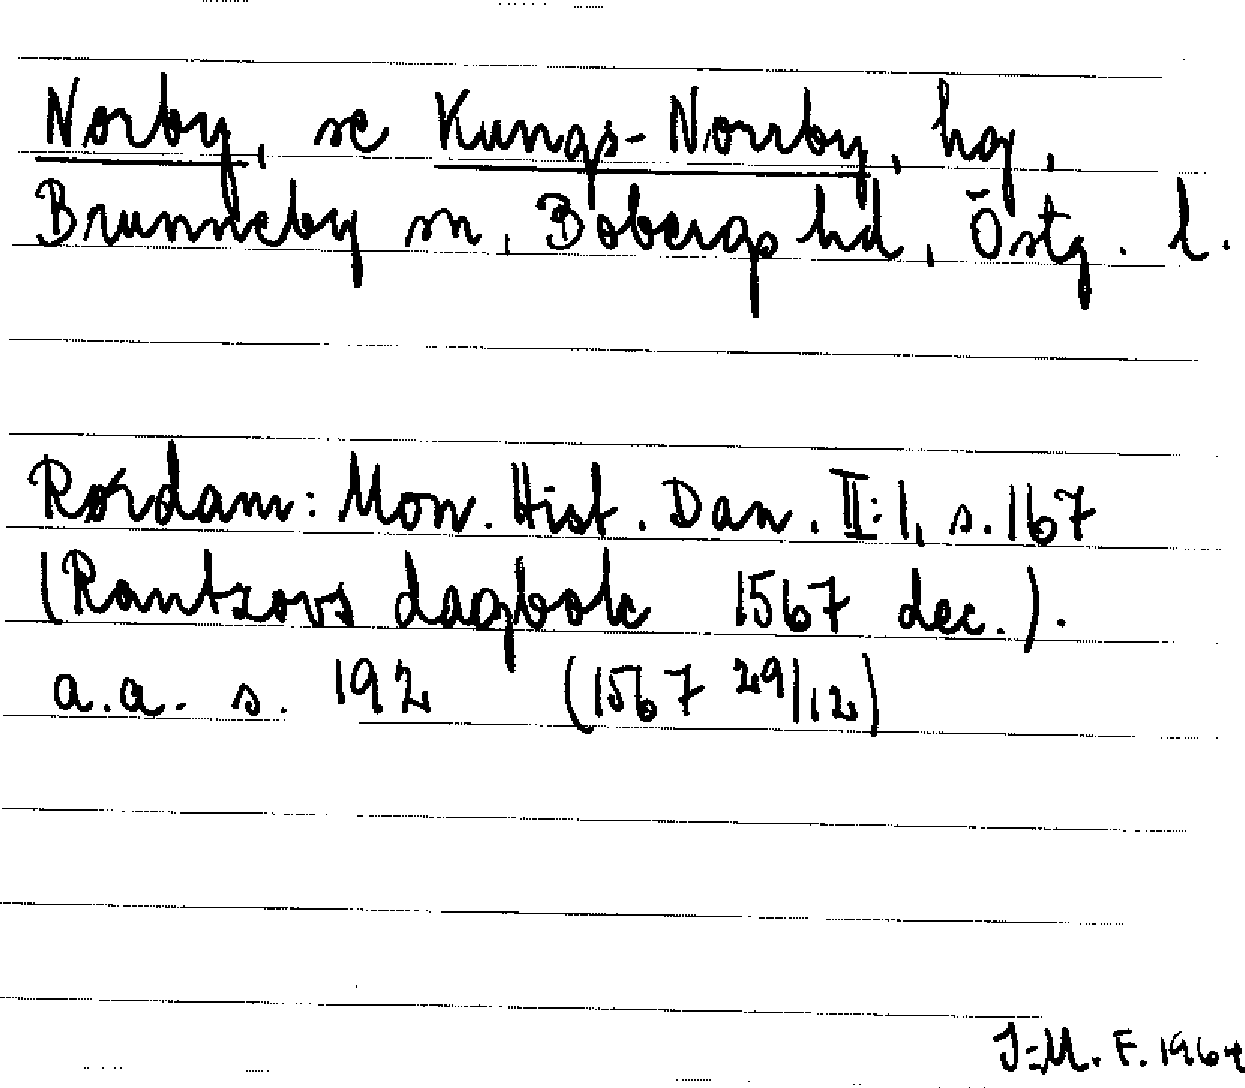 Norby, se Kungs-Norrby, hg,
Brunneby sn, Bobergs hd, Östg. l.
Rørdam: Mon. Hist. Dan. II:1, s. 167
(Rantzovs dagbok 1567 dec.).
a.a. s. 192 (1567 29/12)
J-M. F. 1964